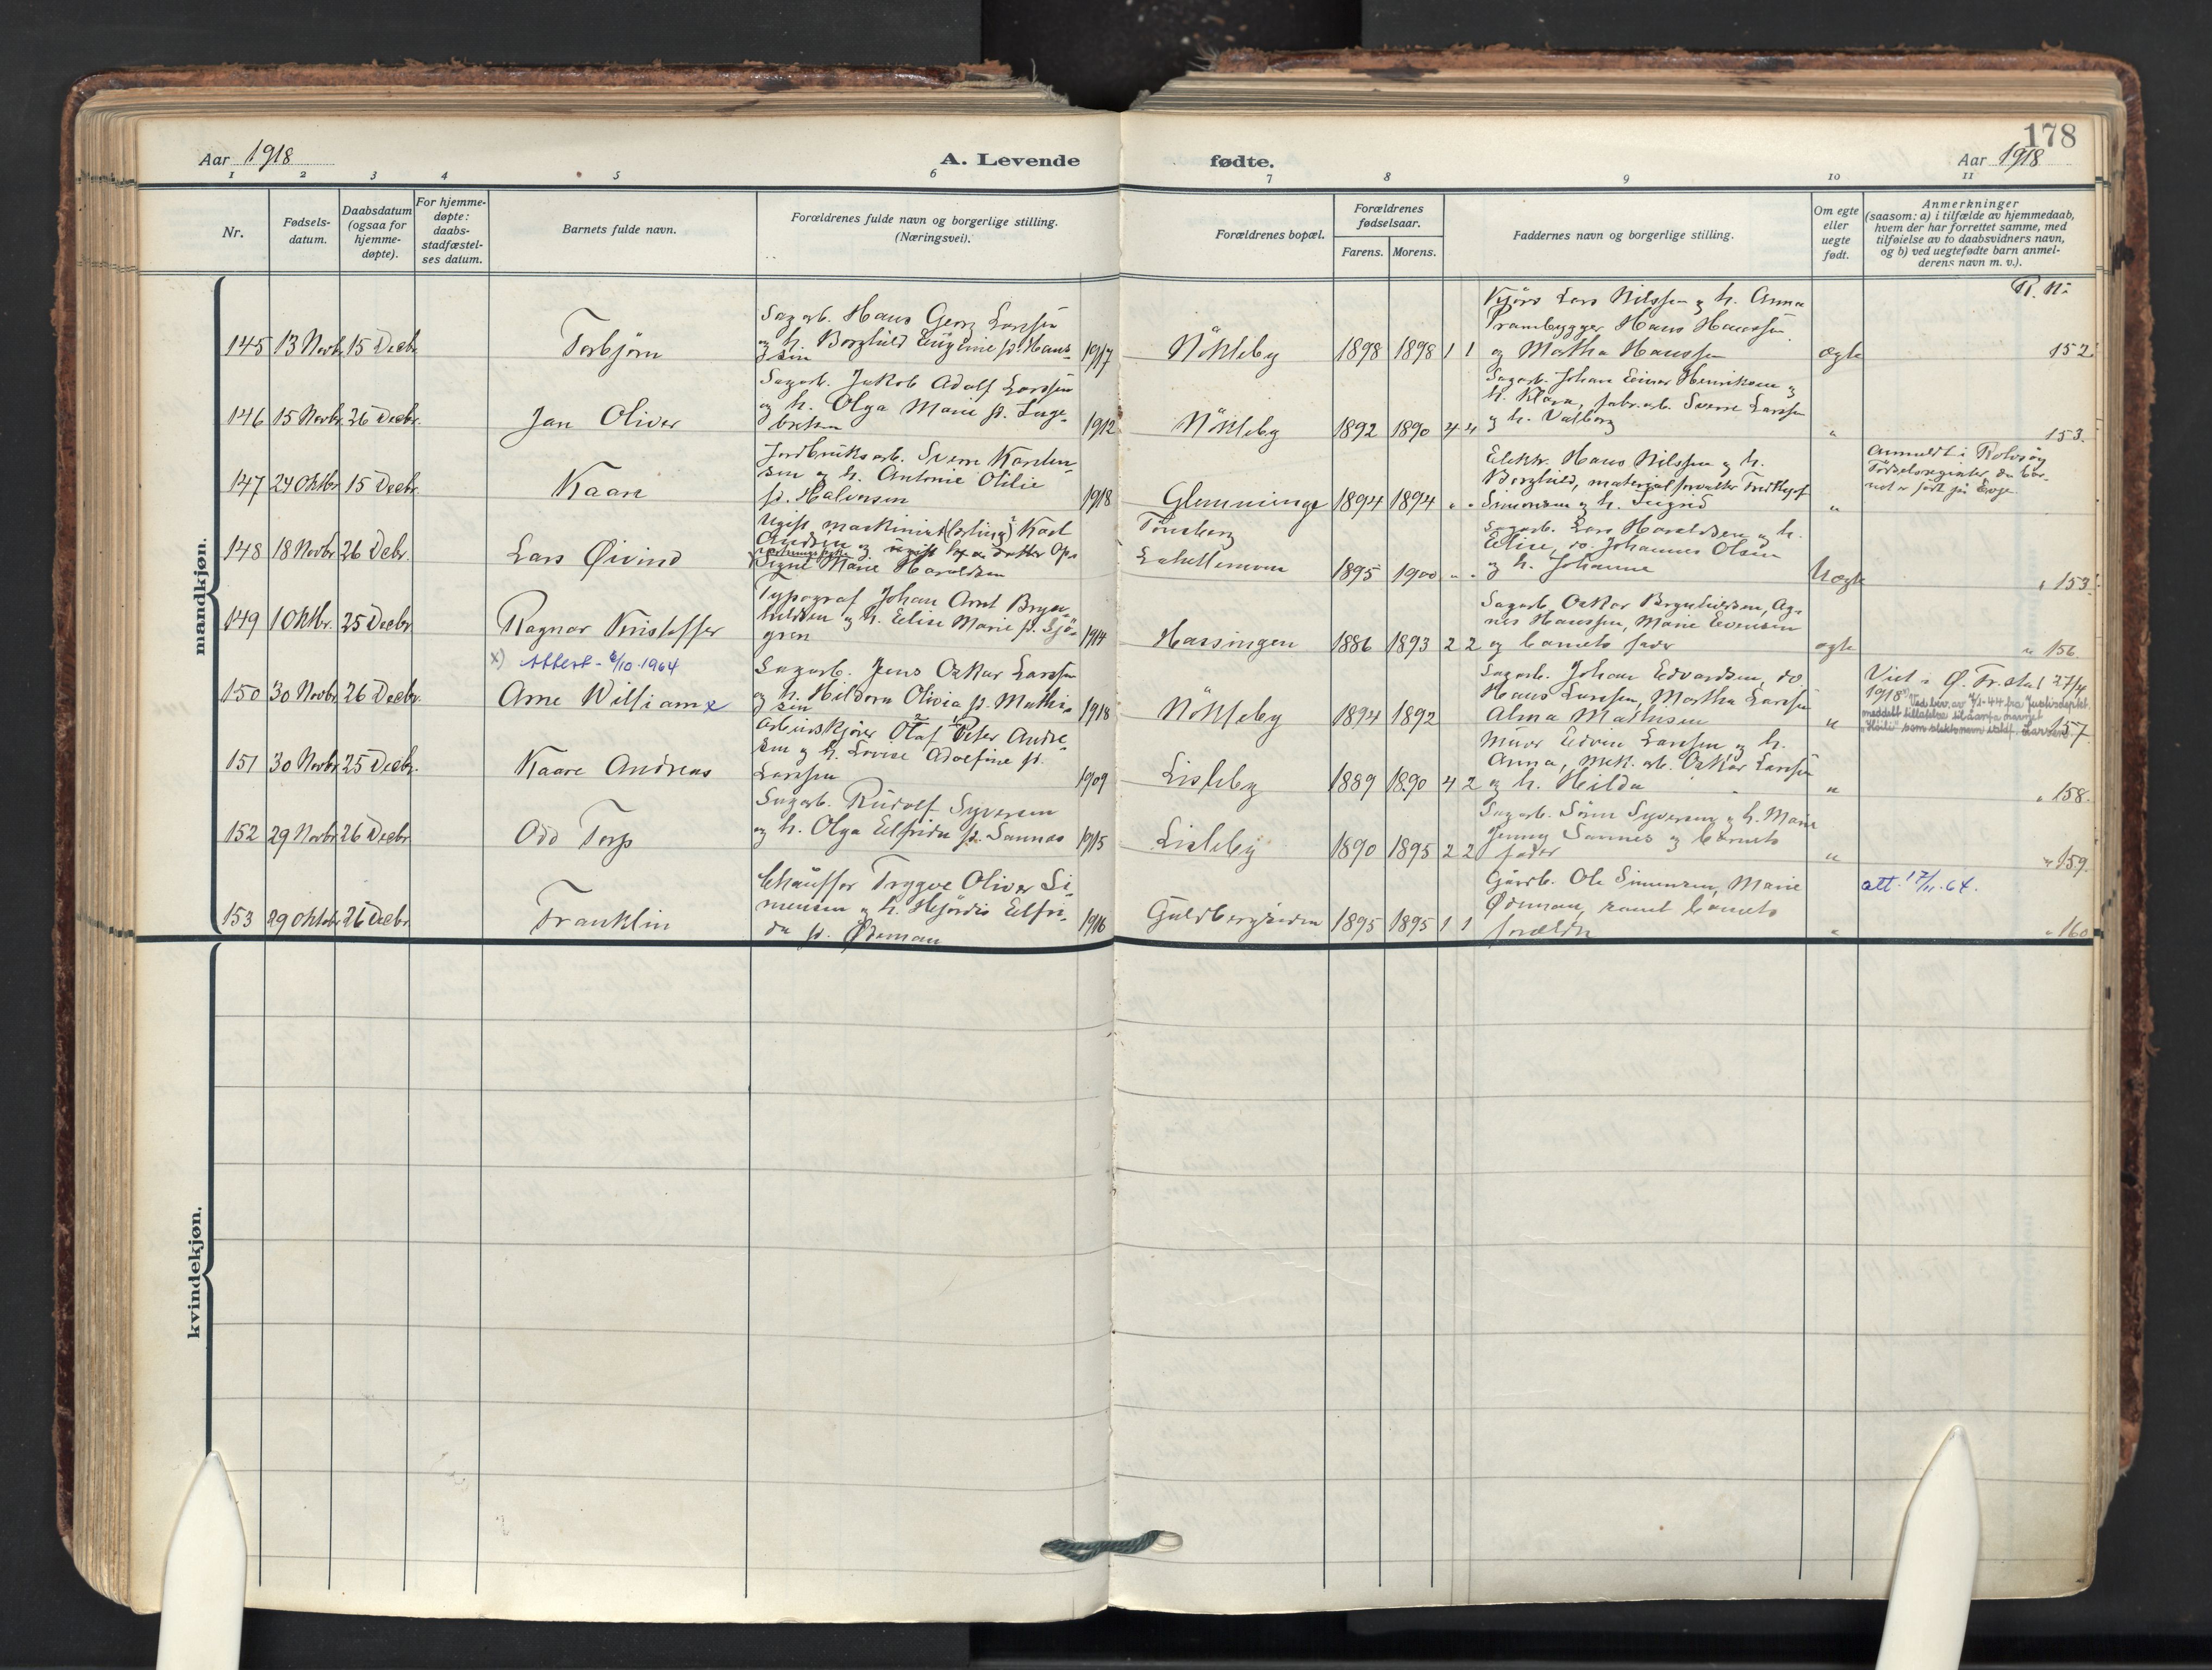 178
Aar 1918
A. Levende fødte.
Aar 1918
1 2 3 4 5 6 7 8 9 10 11
Nr.
Fødsels-
datum.
Daabsdatum
(ogsaa for
hjemme-
døpte).
For hjemme-
døpte:
daabs-
stadfæstel-
ses datum.
Barnets fulde navn.
Forældrenes fulde navn og borgerlige stilling.
(Næringsvei).
Forældrenes bopæl.
Forældrenes
fødselsaar.
Farens. Morens.
Faddernes navn og borgerlige stilling.
Om egte
eller
uegte
født.
Anmerkninger
(saasom: a) i tilfælde av hjemmedaab,
hvem der har forrettet samme, med
tilføielse av to daabsvidners navn,
og b) ved uegtefødte barn anmel-
derens navn m. v.).
mandkjøn.
R. No
145 13 Novb. 15 Decbr
Torbjørn
Sagarb. Hans Georg Larssen
og h. Borghild Eugenie f. Hans-
sen
1917
Nøkleby
1898 1898 1 1
Kjörs Lars Nilssen og h. Anna
Prambygger Hans Hanssen
og Martha Hanssen
ægte
152
146 15 Novbr. 26 Decbr.
Jan Oliver
Sagarb. Jakob Adolf Larssen
og h. Olga Marie f. Inge-
bretsen
1912
Nøkleby
1892 1890 4 4
Sagarb. Johan Einar Henriksen og
h. Klara, fabr.arb. Sverre Larssen
og h. Valborg
"
153.
147 24 Oktbr. 15 Decbr.
Kaare
Jordbruksarb. Sverre Karlen-
sen og h. Antonie Otilie
f. Halvorsen
1918
Glemminge
1894 1894 " "
Elektr. Hans Nilssen og h.
Borghild, materialforvalter Fredthjof
Simonsen og h. Sigrid
"
Anmeldt i Rolvsøy
Fødselsregister, da bar-
net er født på Evje.
148 18 Novbr. 26 Debr.
Lars Øivind
Ugift maskinist (lærling) Karl
Andsen og ugift
Signe Marie Haraldsen
Tønsberg
1895 1900 " "
Sagarb. Lars Haraldsen og h.
Elise, do. Johannes Olsen
og h. Johanne
Uægte
" 153
149 1 Oktbr. 25 Decbr
Ragnar Kristoffer
Typograf Johan Arnt Bryn-
hildsen og h. Elise Marie f. Sjö-
gren
1914
Hassingen
1886 1893 2 2
Sagarb. Oskar Brynhildsen, Ag-
nes Hanssen, Marie Evensen
og barnets fader
ægte
" 156
x) Attest - 6/10-1964
150 30 Novbr. 26 Decbr.
Arne William x
Sagarb. Jens Oskar Larssen
og h. Hildora Olivia f. Mathi-
sen
1918
Nøkleby
1894 1892
Sagarb. Johan Edvardsen, do.
Hans Larssen, Martha Larssen
Alma Mathisen
"
Viet i Ø. Fr.stad 27/4
1918 x) Ved bev. av 4/1-44 fra Justisdeptet
meddelt tillatelse til å anta navnet
som slektsnavn istf. Larssen.
157
151 30 Novbr. 25 Decbr.
Kaare Andreas
Arbeidskjører Olaf Peter Andre-
sen og h. Lovise Adolfine f.
Larssen
1909
Lisleby
1889 1890 4 2
Murer Edvin Larssen og h.
Anna, mek. arb. Oskar Larssen
og h. Hilda
"
" 158.
152 29 Novbr. 26 Decbr.
Odd Torp
Sagarb. Rudolf Syversen
og h. Olga Elfrida f. Sannes
1915
Lisleby
1890 1895 2 2
Sagarb. Sörin Syversen og h. Marie
Jenny Sannes og barnets
fader
"
" 159.
153 29 Oktober 26 Decbr.
Franklin
Chauffør Trygve Oliver Si-
mensen og h. Hjördis Elfri-
da f. Ødeman
1916
Guldbergsiden
1895 1895 1 1
Gaardb. Ole Simensen, Marie
Ødeman, samt barnets
forældre
"
att. 17/11-64.
" 160
kvindekjøn.